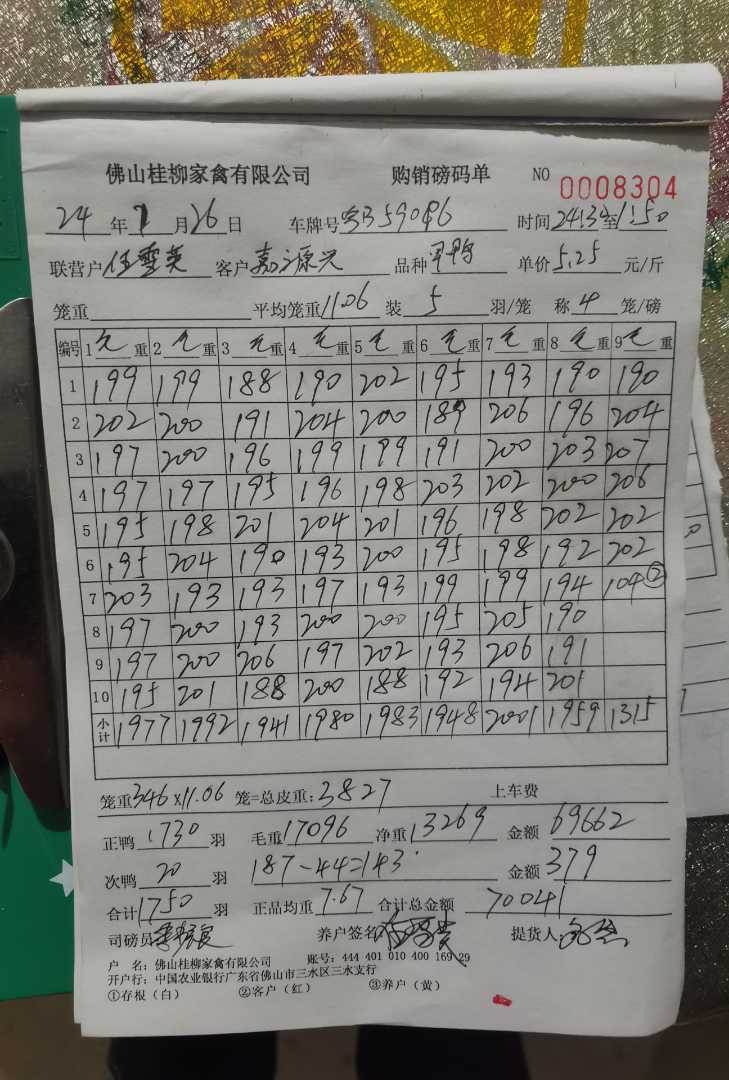 佛山桂柳家禽有限公司 购销磅码单 NO 0008304
24 年 1 月 26 日 车牌号 时间 至 1:50
联营户 伍雪英 客户 嘉源兴 品种 单价 5.25 元/斤
笼重 平均笼重 11.06 装 5 羽/笼 称 4 笼/磅
编号 1 毛 重 2 毛 重 3 毛 重 4 毛 重 5 毛 重 6 毛 重 7 毛 重 8 毛 重 9 毛 重
1 199 199 188 190 202 195 193 190 190
2 202 200 191 204 200 189 206 196 204
3 197 200 196 199 199 191 200 203 207
4 197 197 195 196 198 203 202 200 206
5 195 198 201 204 201 196 198 202 202
6 195 204 190 193 200 195 198 192 202
7 203 193 193 197 193 199 199 194 104 ②
8 197 200 193 200 200 195 205 190
9 197 200 206 197 202 193 206 191
10 195 201 188 200 188 192 194 201
小计 1977 1992 1941 1980 1983 1948 2001 1959 1315
笼重 346 x11.06 笼=总皮重: 3827 上车费
正鸭 1730 羽 毛重 17096 净重 13269 金额 69662
次鸭 20 羽 187-44=143 金额 379
合计 1750 羽 正品均重 7.67 合计总金额 70041
司磅员 养户签名 提货人:
户 名: 佛山桂柳家禽有限公司 账号: 444 401 010 400 169 29
开户行: 中国农业银行广东省佛山市三水区三水支行
①存根（白） ②客户（红） ③养户（黄）